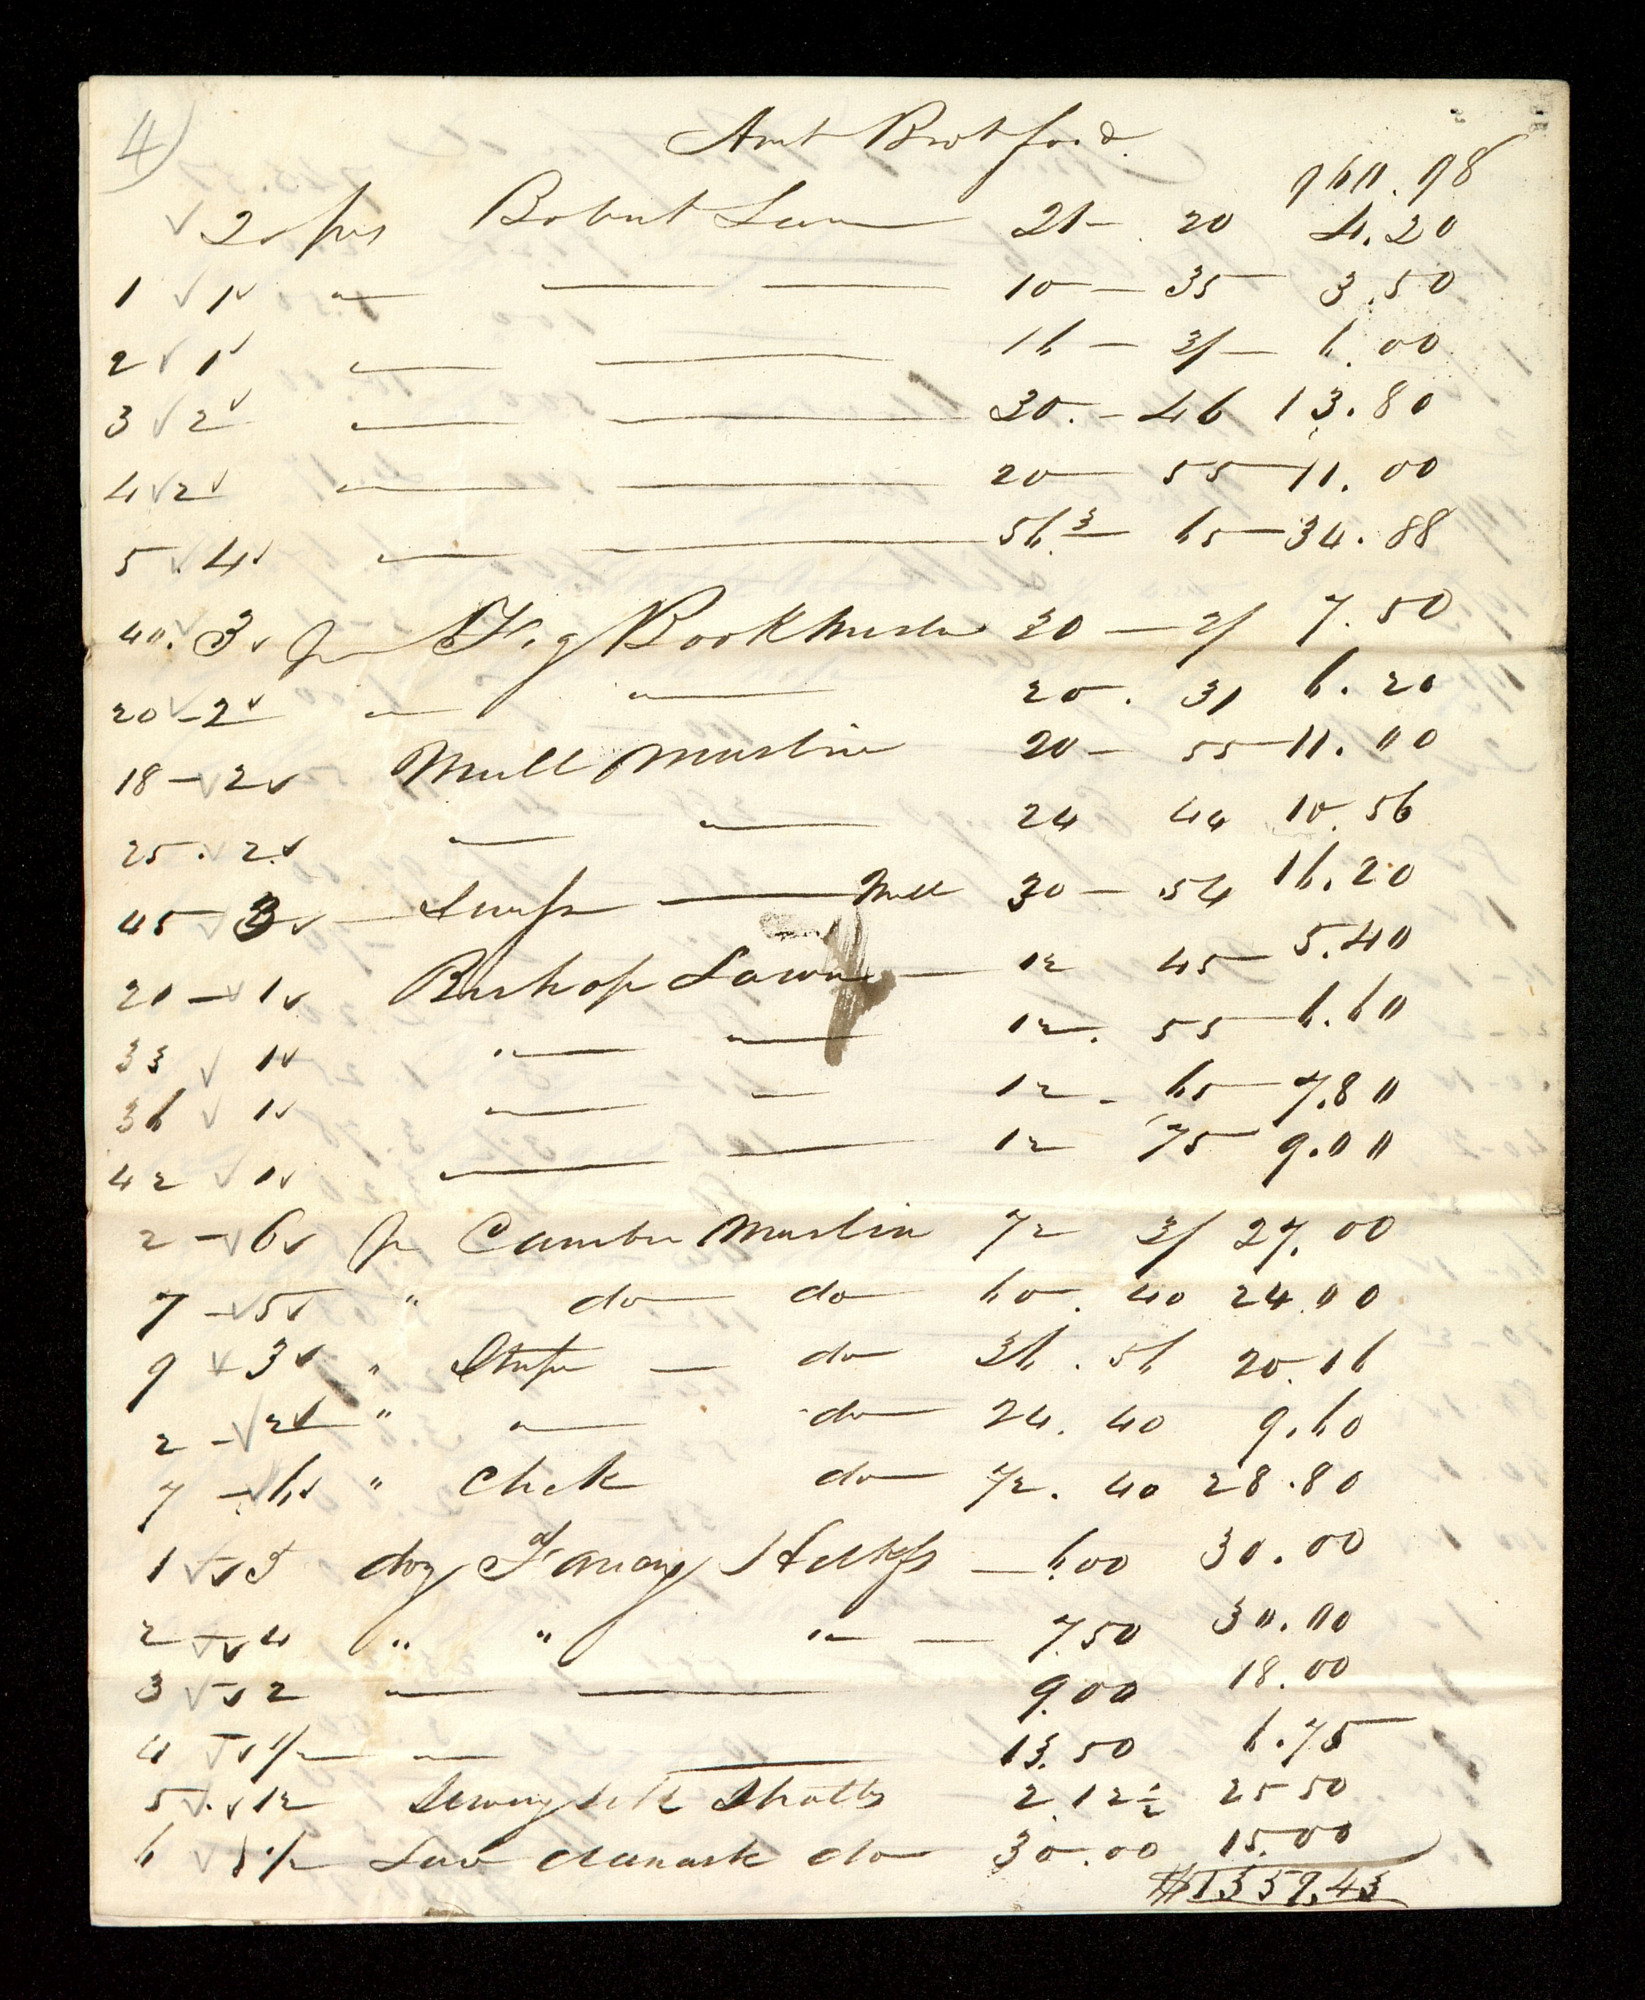 4)
Amt Brot ford.
960.98
✓ 2 ✓ pcs Bobinet Lawn 21 - 20 4.20
1 ✓ 1 ✓ " — — 10 - 35 3.50
2 ✓ 1 ✓ — — 16 - 3/ - 6.00
3 ✓ 2 ✓ — — 30. - 46 13.80
4 ✓ 2 ✓ — — 20 55 11.00
5 ✓ 4 ✓ — — 56.3 65 34.88
40. 3 ✓ ps Fig Book Muslin 30 - 2/ 7.50
20 ✓ - 2 ✓ — — 20. 31 6.20
18 - ✓ 2 ✓ Mull Muslin 20 - 55 11.00
25. ✓ 2 ✓ — — 24 44 10.56
45 - ✓ 3 ✓ — Mull 30 - 54 16.20
20 - ✓ 1 ✓ Bishop Lawn — 12 45 5.40
33 ✓ 1 ✓ " — — 12. 55 6.60
36 ✓ 1 ✓ — — 12 - 65 7.80
42 ✓ 1 ✓ — — 12 75 9.00
2 - ✓ 6 ✓ ps Cambric Muslin 72 3/ 27.00
7 - ✓ 5 ✓ " do do 60. 40 24.00
9 ✓ - 3 ✓ " Stripe — do 36. 56 20.16
2 - ✓ 2 ✓ " " — do 24. 40 9.60
7 - ✓ 6 ✓ " Chek do 72. 40 28.80
1 ✓ ✓ 5 doz Fancy Hdkfs — 6.00 30.00
2 - ✓ ✓ 4 " " " — 7.50 30.00
3 ✓ ✓ 2 — — 9.00 18.00
4 ✓ ✓ 1/2 — — 13.50 6.75
5 ✓. ✓ 12 Sewing silk Shalls 2.12 1/2 25 50
6 ✓ 1/2 damask do 30.00 15.00
$1359.43